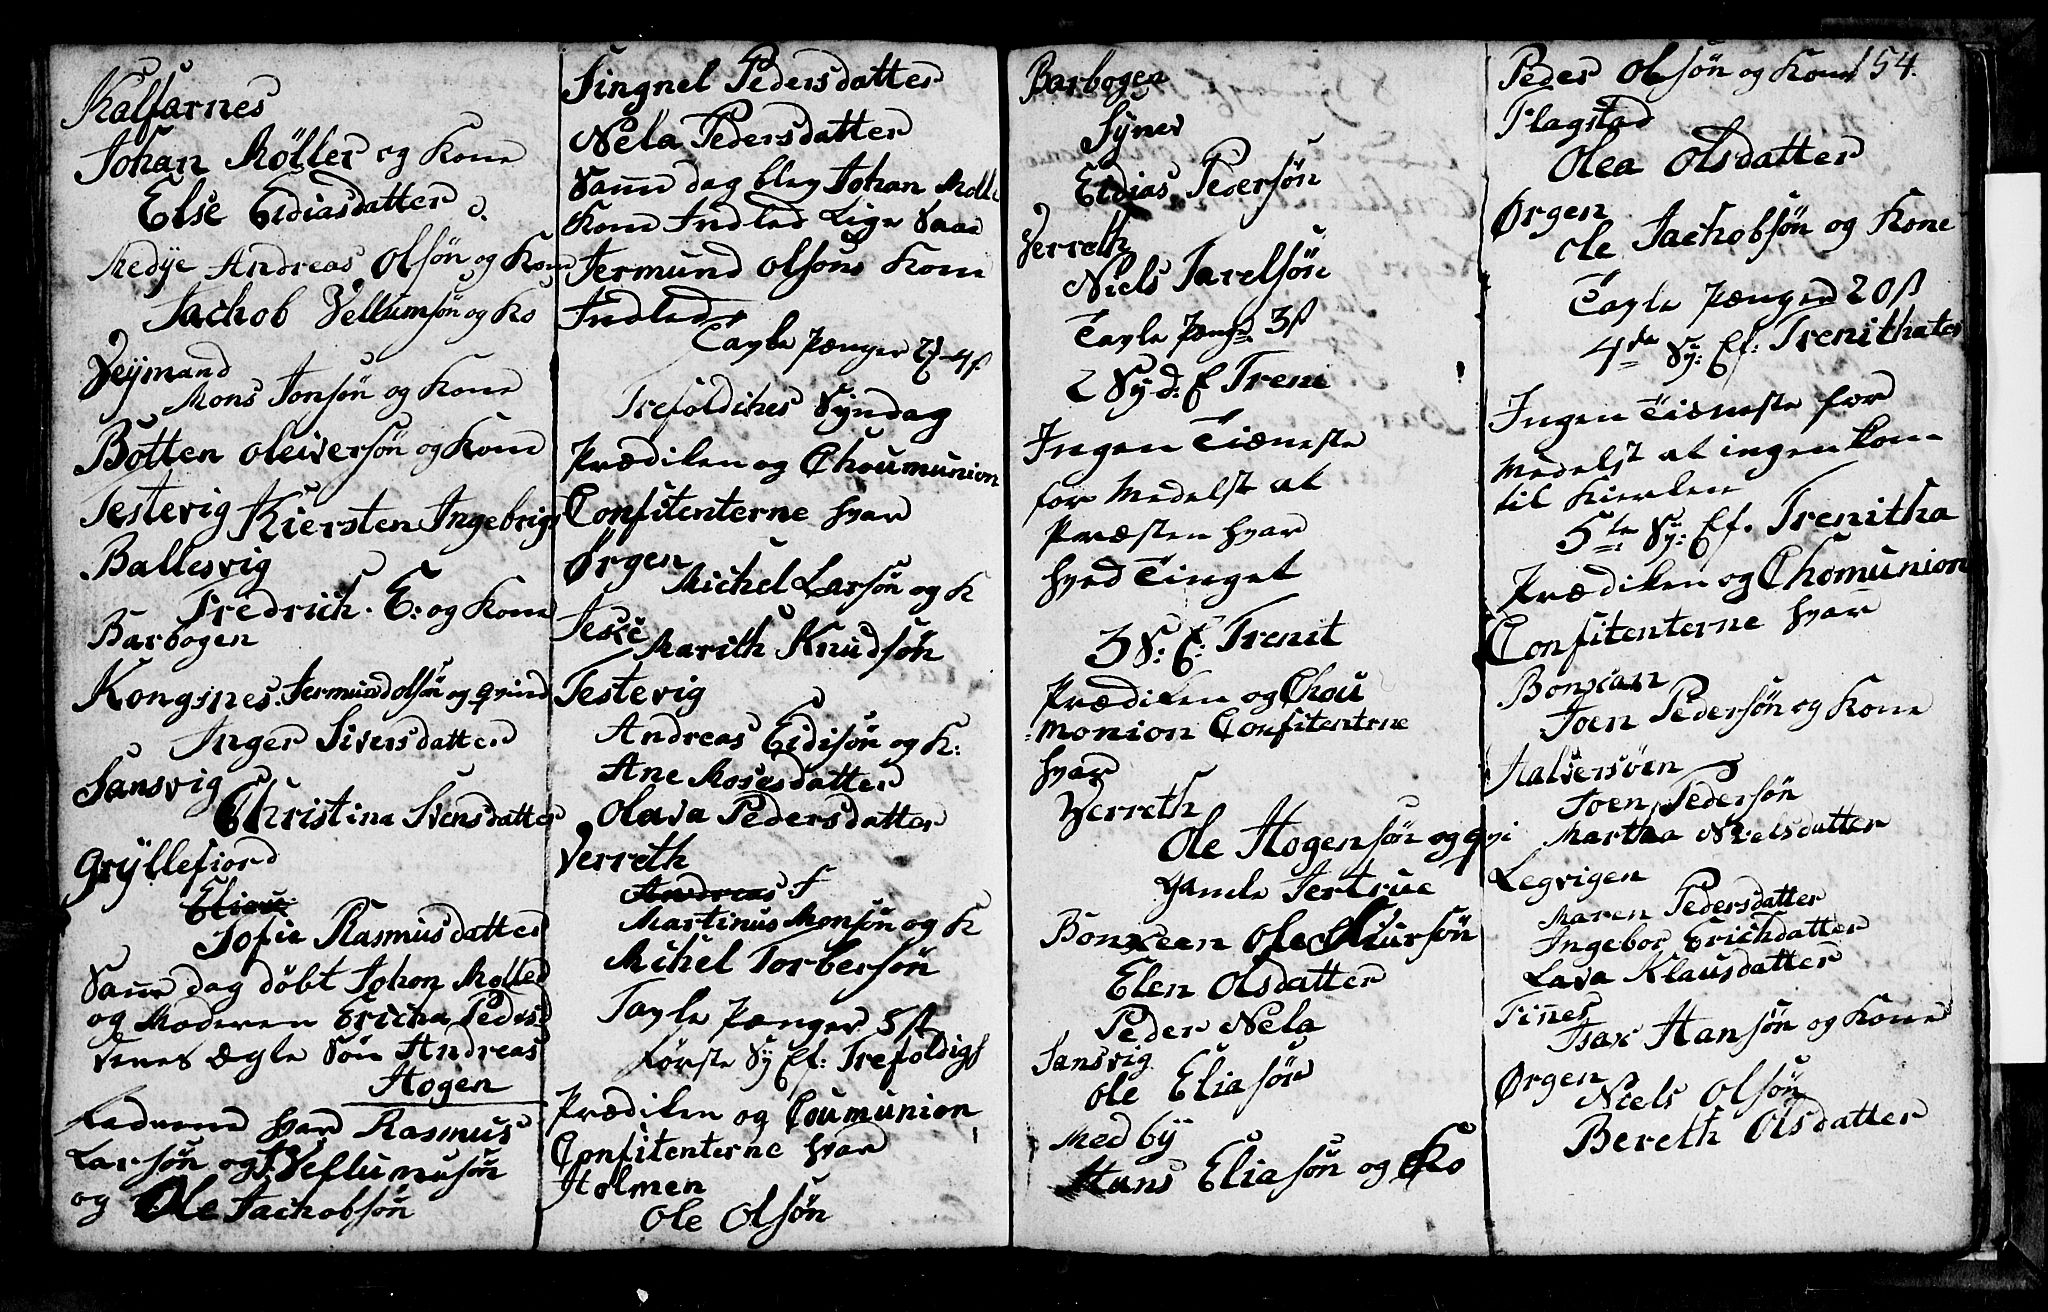 Kalfarnes
Johan Møller og Kone
Else Eidiasdatter
Medye Andreas Olsøn og Kone
Jachob Vellumsøn og Ko
Veÿmand
Mons Jonsøn og Kone
Botten Oleiversøn og Kone
Testevig Kiersten Ingebrigs
Ballesvig
Fredrich. E: og Kone
Barbogen
Kongsnes Jermund olsøn og qvind
Inger Siversdatter
Sansvig
Christina Svensdatter
Grÿllefiord
Sofia Rasmusdatter
Samme dag døbt Johan Møller
og Moderen Ericha Peders
Ægte Søn Andreas
Hogen
Fadderne hvar Rasmus
Larsøn og Vellumsøn
og Ole Jachobsøn
Singnel Pedersdatter
Nela Pedersdatter
Samme dag blev Johan Molle
Kone Indled Lige Saa
Jermund olsons Kone
Indled
Tavle Pænger 2 4ß
Trefoldihes Syndag
Prædiken og Choumunion
Confitenterne hvar
Ørgen
Michel Larsøn og K
Teskie
Marith Knudsøn
Testevig
Andreas Eidisøn og K:
Ane Mosesdatter
Olava Pedersdatter
Verreth
Andreas f
Martinus Monsøn og K
Mihel Torbersøn
Tavle Pænger 5 st
første Sy Ef: Trefoldigh
Prædiken og Coumunion
Confitenterne hvar
Holmen
Ole Olsøn
Barbogen
Eidias Pedersøn
Verreth
Niels Tarelsøn
Tavle Pænge 3ß
2 Sy d: E Treni
Ingen Tiæneste
for Medelst at
Præsten hvar
hved Tinget
3 S: E: Trenit
Prædiken og Chou
monion Confitentrne
hvar
Verreth
Ole Hogensøn og qvi
gamle Jertrue
Bonxean Ole
Elen Olsdatter
Peder Nela
Sansvig
Ole Eliasøn
Medby
Hans Eliasøn og Ko
154.
Peder Olsøn og Kone
Flagstad
Olea Olsdatter
Ørgen
Ole Jachobsøn og Kone
Tavle Pænger 20ß
4de Sy: Ef: Trenithates
Ingen Tiæneste for
Medelst at ingen kom
til Kierken
5te Sy: Ef. Trenitha
Prædiken og Chomunion
Confitenterne hvar
Bonxan
Joen Pedersøn og Kone
Halversøen
Joen Pedersøn
Martha Nielsdatter
Legvigen
Maren Pedersdatter
Ingebor Erichdatter
Lava Klausdatter
Finnes
Isax Hansøn og Kone
Ørgen
Niels Olsøn
Bereth Olsdatter